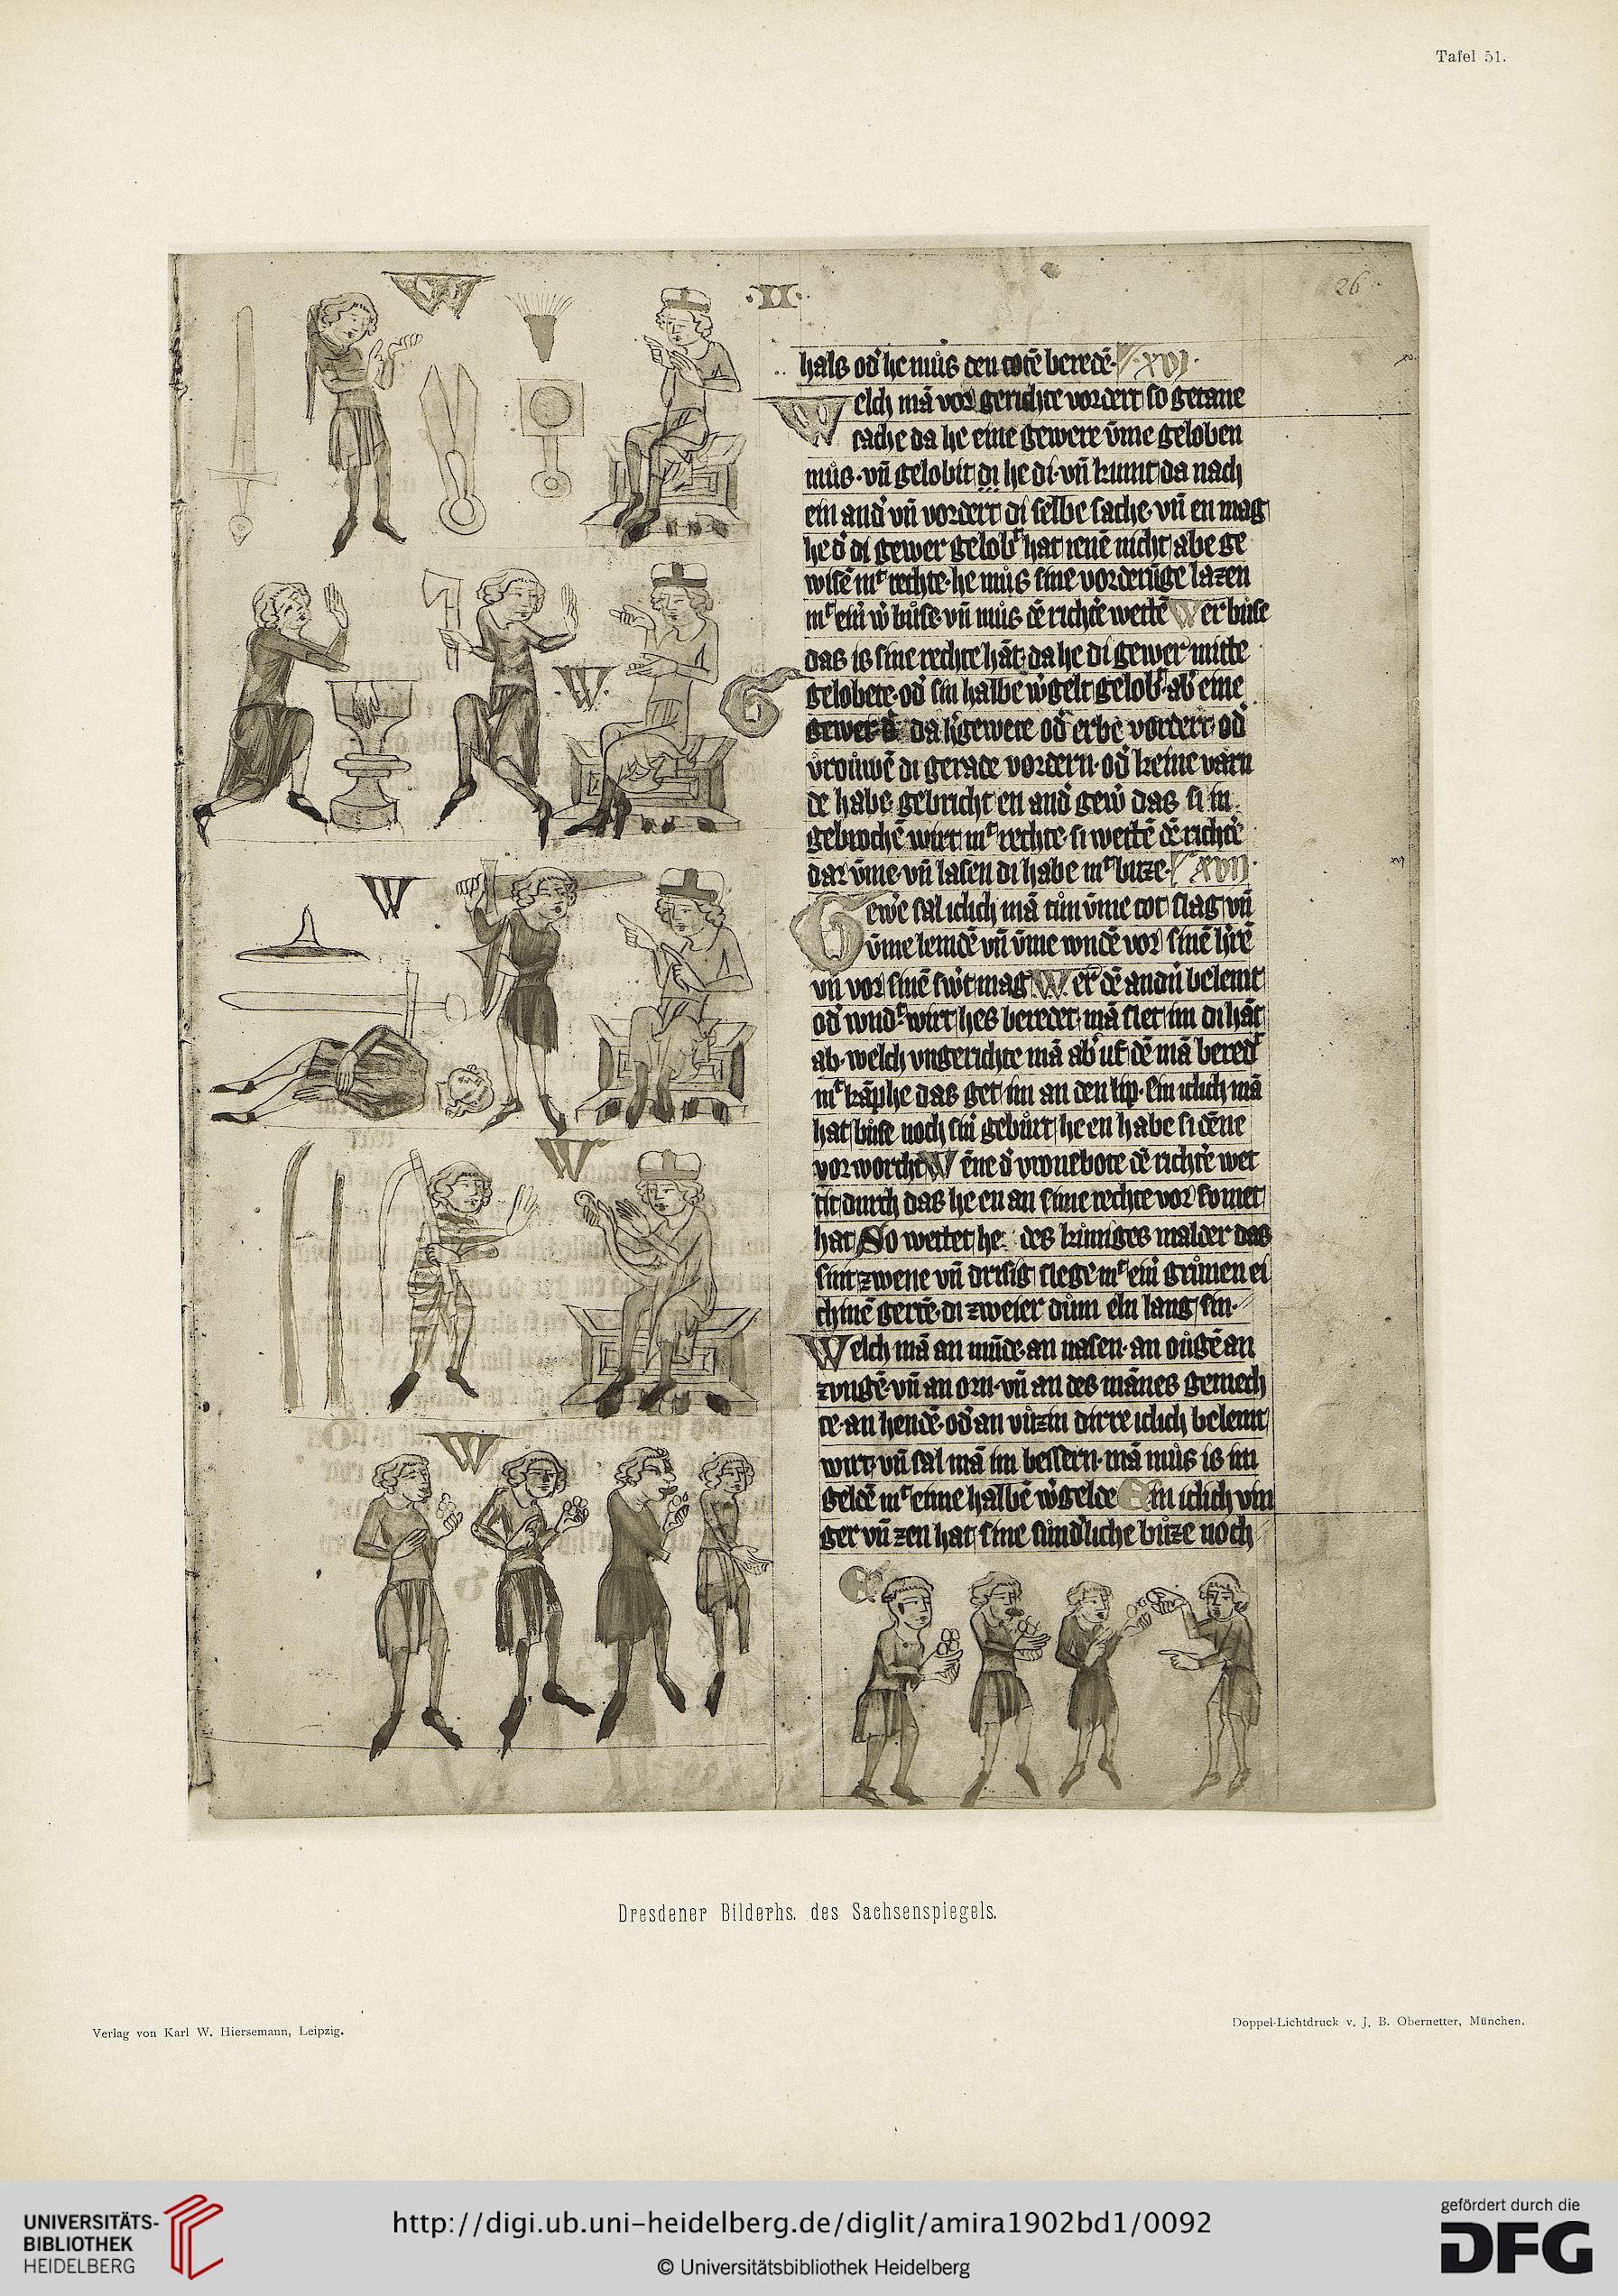 Tafel 51.
·II·
26
hals od' he mus den totē beredē· XVI·
Welch mā vor gerichte vordert so getane
sache da he eine gewere v̄me geloben
mus· vn̄ gelobit di he di· vn̄ kumt da nach
ein and' vn̄ vordert di selbe sache· vn̄ en mag
he d' di gewer gelobt hat ienē nicht abe ge
wisē mt rechte· he mus sine vorderūge lazen
mt ein' w' buse· vn̄ mus dē richt'e wettē Wer buse
das is sine rechte hāt· da he di gewer mitte
gelobete· od' sin halbe w'gelt
gewer da h' gewere od' erbe vordert· od'
vrouwē di gerade vordern· od' keine varn
de habe· gebricht en and' gew' das si in
gebrochē wirt mt rechte· si wettē dē richt'e
dar v̄me· vn̄ lasen di habe mt buze· XVII·
Gew'e sal iclich mā tun v̄me tot slag vn̄
v̄me lemdē vn̄ v̄me wndē vor sinē h'rē
vn̄ vor sinē sw't mag Wer dē andn̄ belemt
od' wndt· wirt hes beredet· mā slet im di hāt
ab· welch vngerichte mā ab' uf dē mā beredt
mt kāphe das get im an den lip· Ein iclich mā
hat buse noch sin' geburt he en habe si dēne
vorworcht Wēne d' vronebote dē richt'e wet
tit durch das he en an sime rechte vor somet
hat So wettet he des kuniges malder das
sint zwene vn̄ drisig slege mt ein' grunen ei
chinē gertē· di zweier dum eln lang sin·
Welch mā an mūde· an nasen· an ougē an
zungē· vn̄ an orn· vn̄ an des mānes gemech
te· an hendē· od' an vuzin dirre iclich belemt
wirt· vn̄ sal mā im bessern· mā mus is im
geldē mt eime halbē w'gelde Ein iclich vin
ger vn̄ zen hat sine sundliche buze noch
Dresdener Bilderhs. des Sachsenspiegels.
Verlag von Karl W. Hiersemann, Leipzig.
Doppel-Lichtdruck v. J. B. Obernetter, München.
UNIVERSITÄTS-
BIBLIOTHEK
HEIDELBERG
http://digi.ub.uni-heidelberg.de/diglit/amira1902bd1/0092
© Universitätsbibliothek Heidelberg
gefördert durch die
DFG